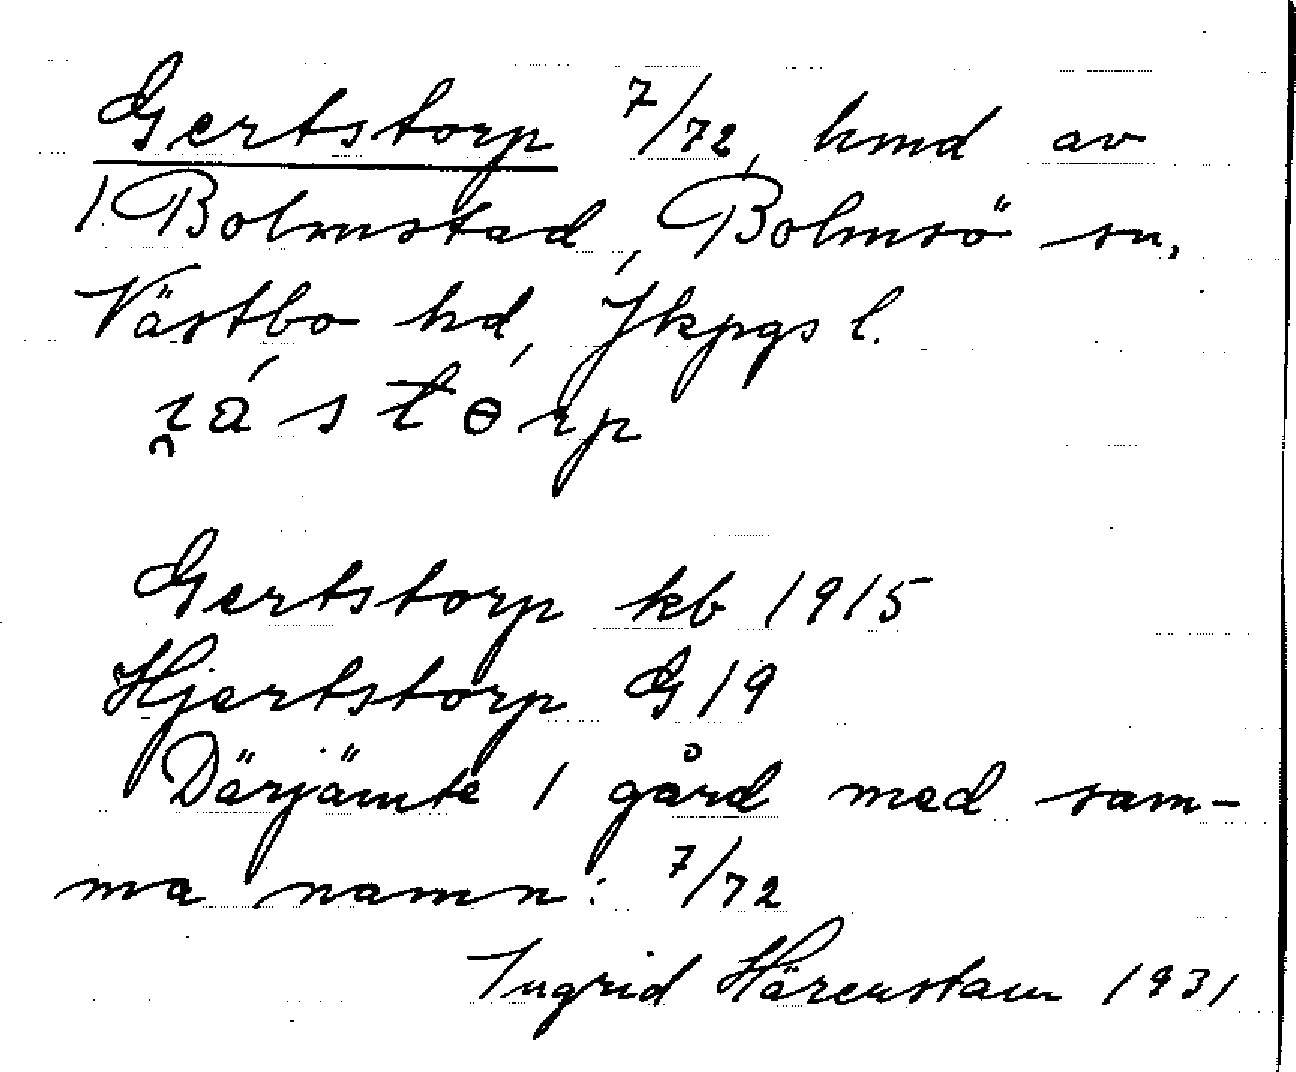 Gertstorp 7/72, hmd av
1 Bolmstad, Bolmsö sn,
Västbo hd, Jkpgs l.
Gertstorp kb 1915
Hjertstorp G 19
Därjämte 1 gård med sam-
ma namn: 7/72
Ingrid Härenstam 1931